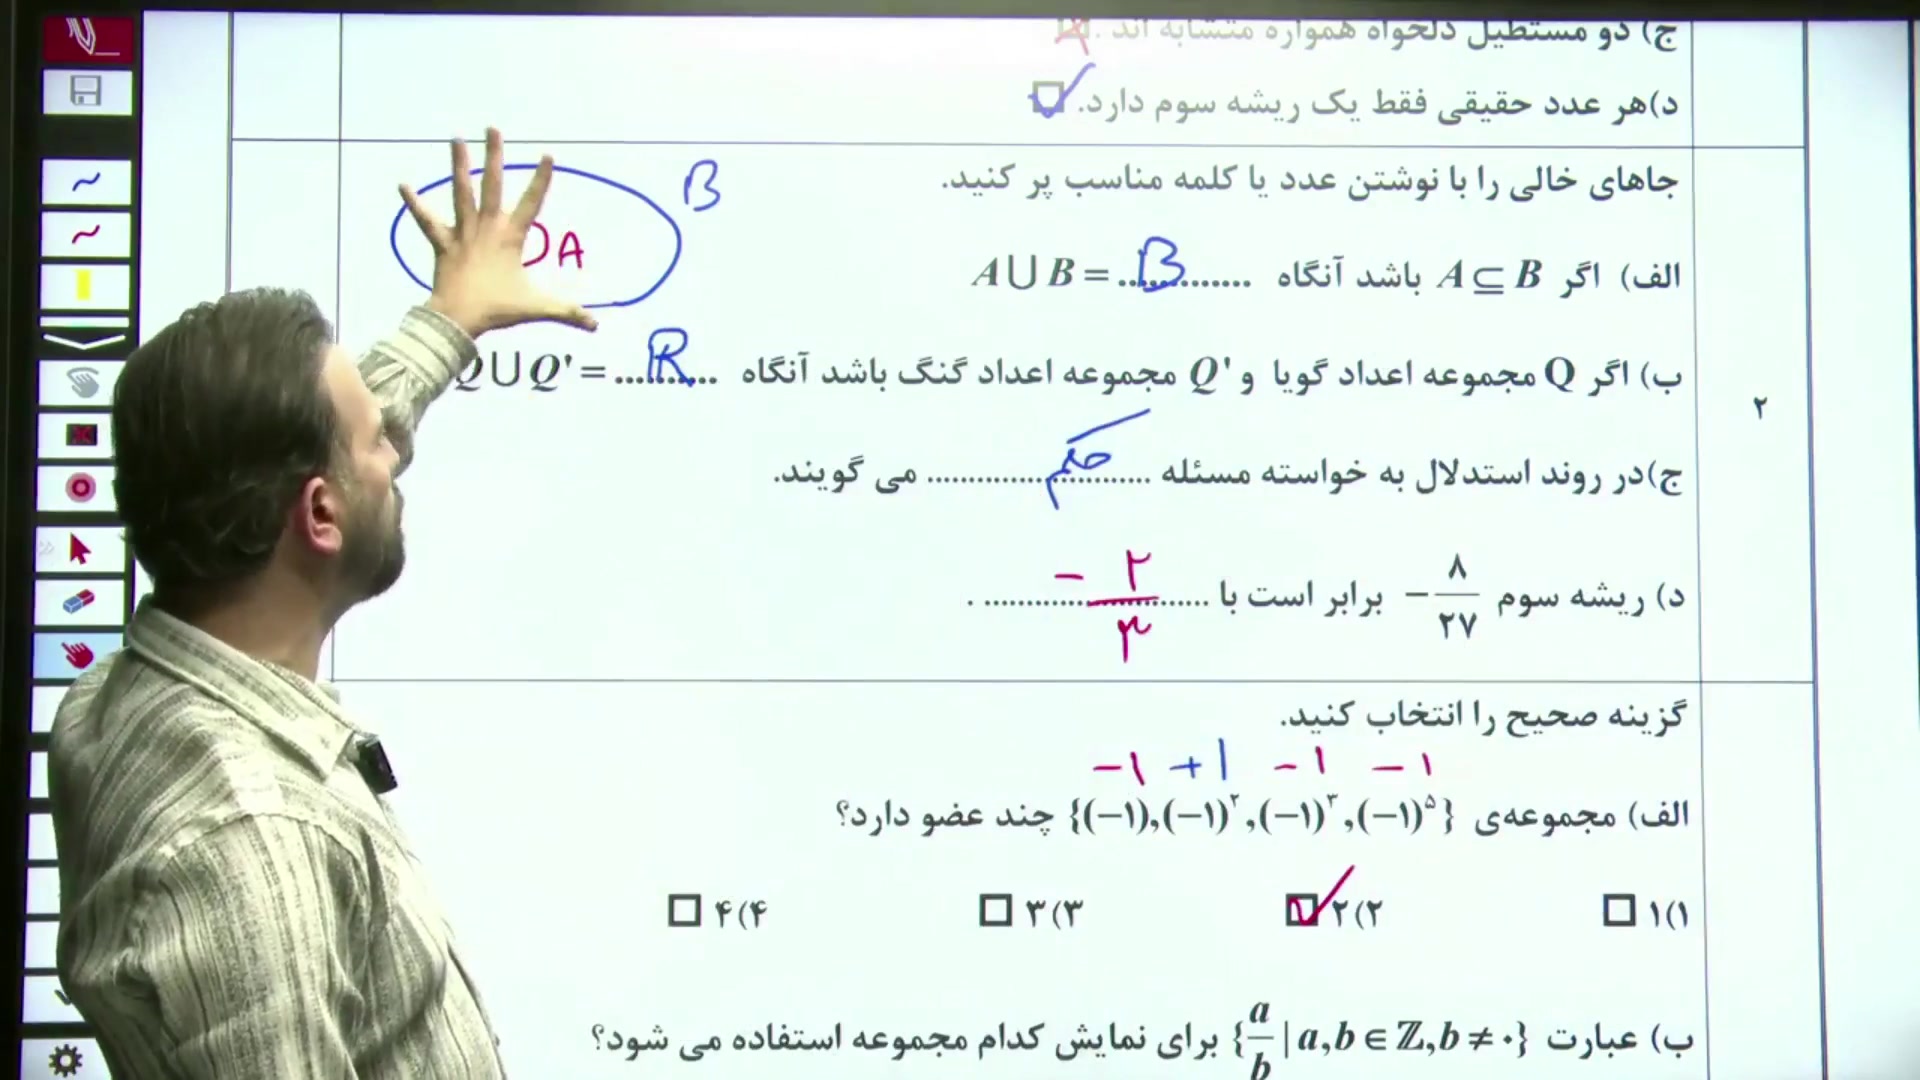 ج) دو مستطیل دلخواه همواره متشابه اند.
د)هر عدد حقیقی فقط یک ریشه سوم دارد.
۲
جاهای خالی را با نوشتن عدد یا کلمه مناسب پر کنید.
B
A
الف) اگر A ⊆ B باشد آنگاه A ∪ B = .....B.......
ب) اگر Q مجموعه اعداد گویا و Q' مجموعه اعداد گنگ باشد آنگاه Q ∪ Q' = ....R.....
ج)در روند استدلال به خواسته مسئله ........حکم........ می گویند.
د) ریشه سوم -۸/۲۷ برابر است با ....-۲/۳.... .
گزینه صحیح را انتخاب کنید.
-۱ +۱ -۱ -۱
الف) مجموعه‌ی {(-۱),(-۱)^۲,(-۱)^۳,(-۱)^۵} چند عضو دارد؟
۱)۱ ۲)۲ ۳)۳ ۴)۴
ب) عبارت {a/b | a,b ∈ ℤ, b ≠ ۰} برای نمایش کدام مجموعه استفاده می شود؟